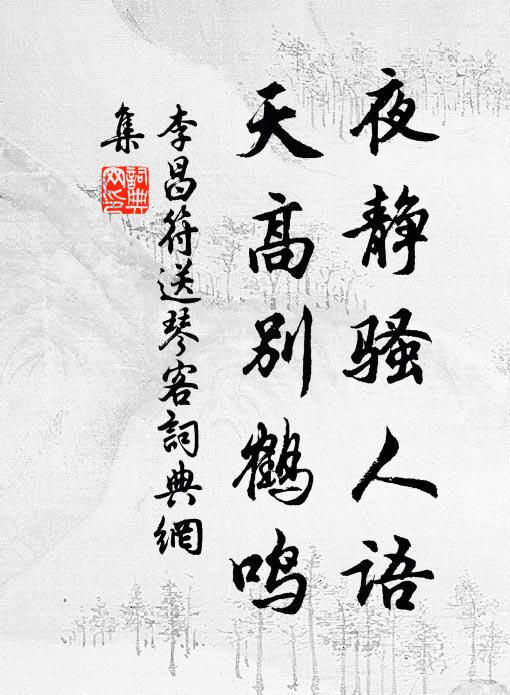 夜静骚人语
天高别鹤鸣
李昌符送琴客詞典網
集
詞典網印